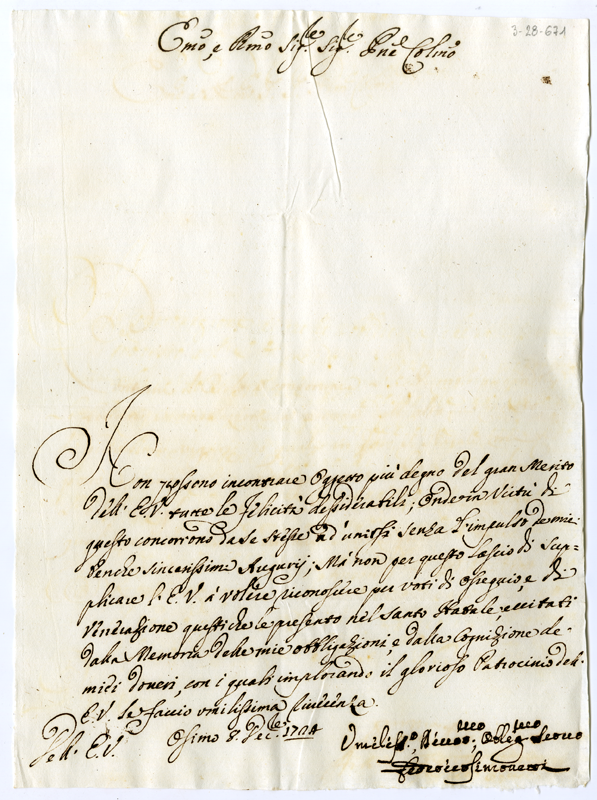 3-28-671
Emo, e Rmo Sig.re Sig.re Pne Colmo
Non possono incontrare Oggetto più degno del gran Merito
dell' E.V. tutte le Felicità desiderabili; Onde in Virtù di
questo concorrono da se stesse ad unirsi senza l'impulso de miei
benche sincerissimi Augurij; Mà non per questo lascio di Sup-
plicare l'E.V. à volere riconoscere per voti di Ossequio, e di
Venerazione questi che le presento nel Santo Natale, eccitati
dalla Memoria delle mie obbligazioni, e dalla Cognizione de
miei doveri, con i quali implorando il glorioso Patrocinio dell'
E.V. le faccio umilissima riverenza.
Dell' E.V. Osimo 8. Dec.re 1724
Umiliss.o, Divmo, Obblegmo Servo